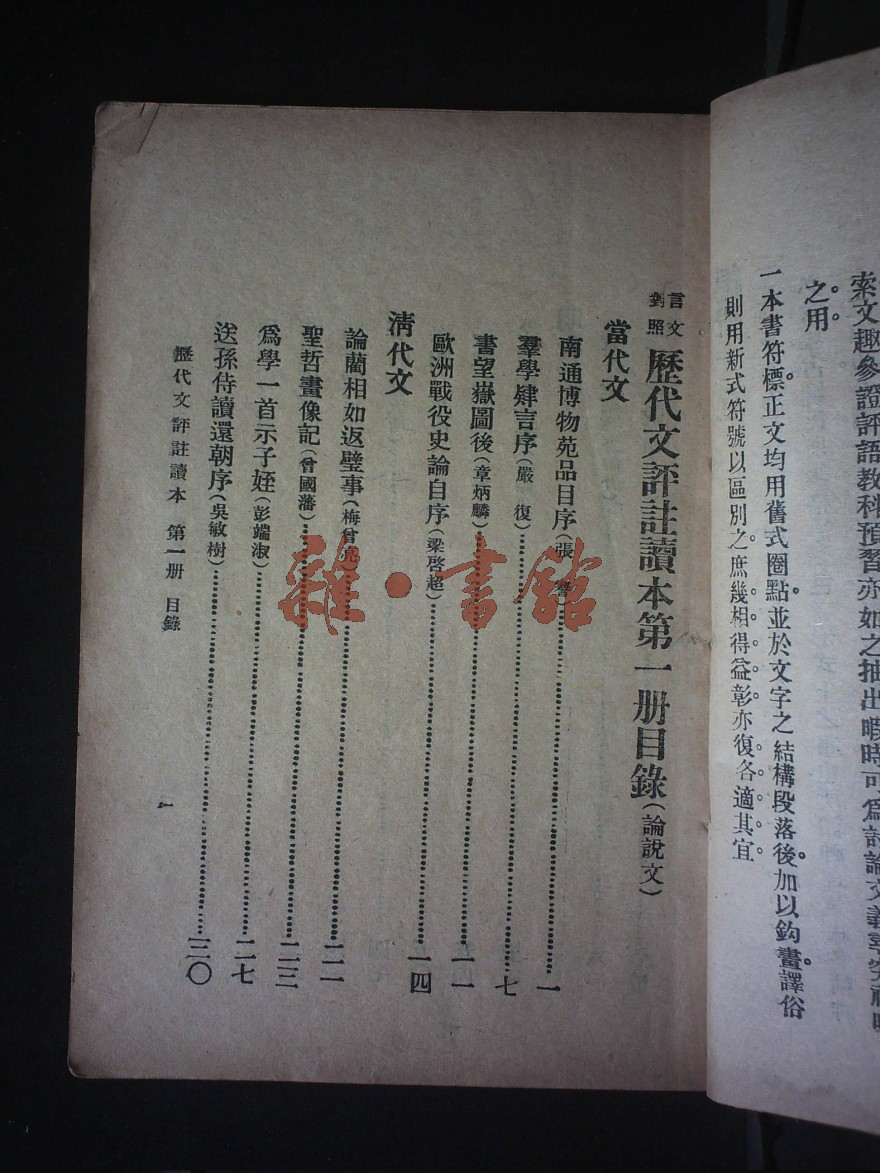 索文趣參證評語教科預習亦如之抽出暇時可爲討論文義
之用。
一本書符標。正文均用舊式圈點。並於文字之結構段落後。加以鈎畫。譯俗
則用新式符號以區別之。庶幾相得益彰。亦復各適其宜。
言文對照 歷代文評註讀本第一册目錄(論說文)
當代文
南通博物苑品目序(張 謇)……一
羣學肄言序(嚴 復)……七
書望嶽圖後(章炳麟)……一一
歐洲戰役史論自序(梁啓超)……一四
清代文
論藺相如返璧事(梅曾亮)……二一
聖哲畫像記(曾國藩)……二三
爲學一首示子姪(彭端淑)……二七
送孫侍讀還朝序(吳敏樹)……三〇
歷代文評註讀本 第一册 目錄
一
雜·書館